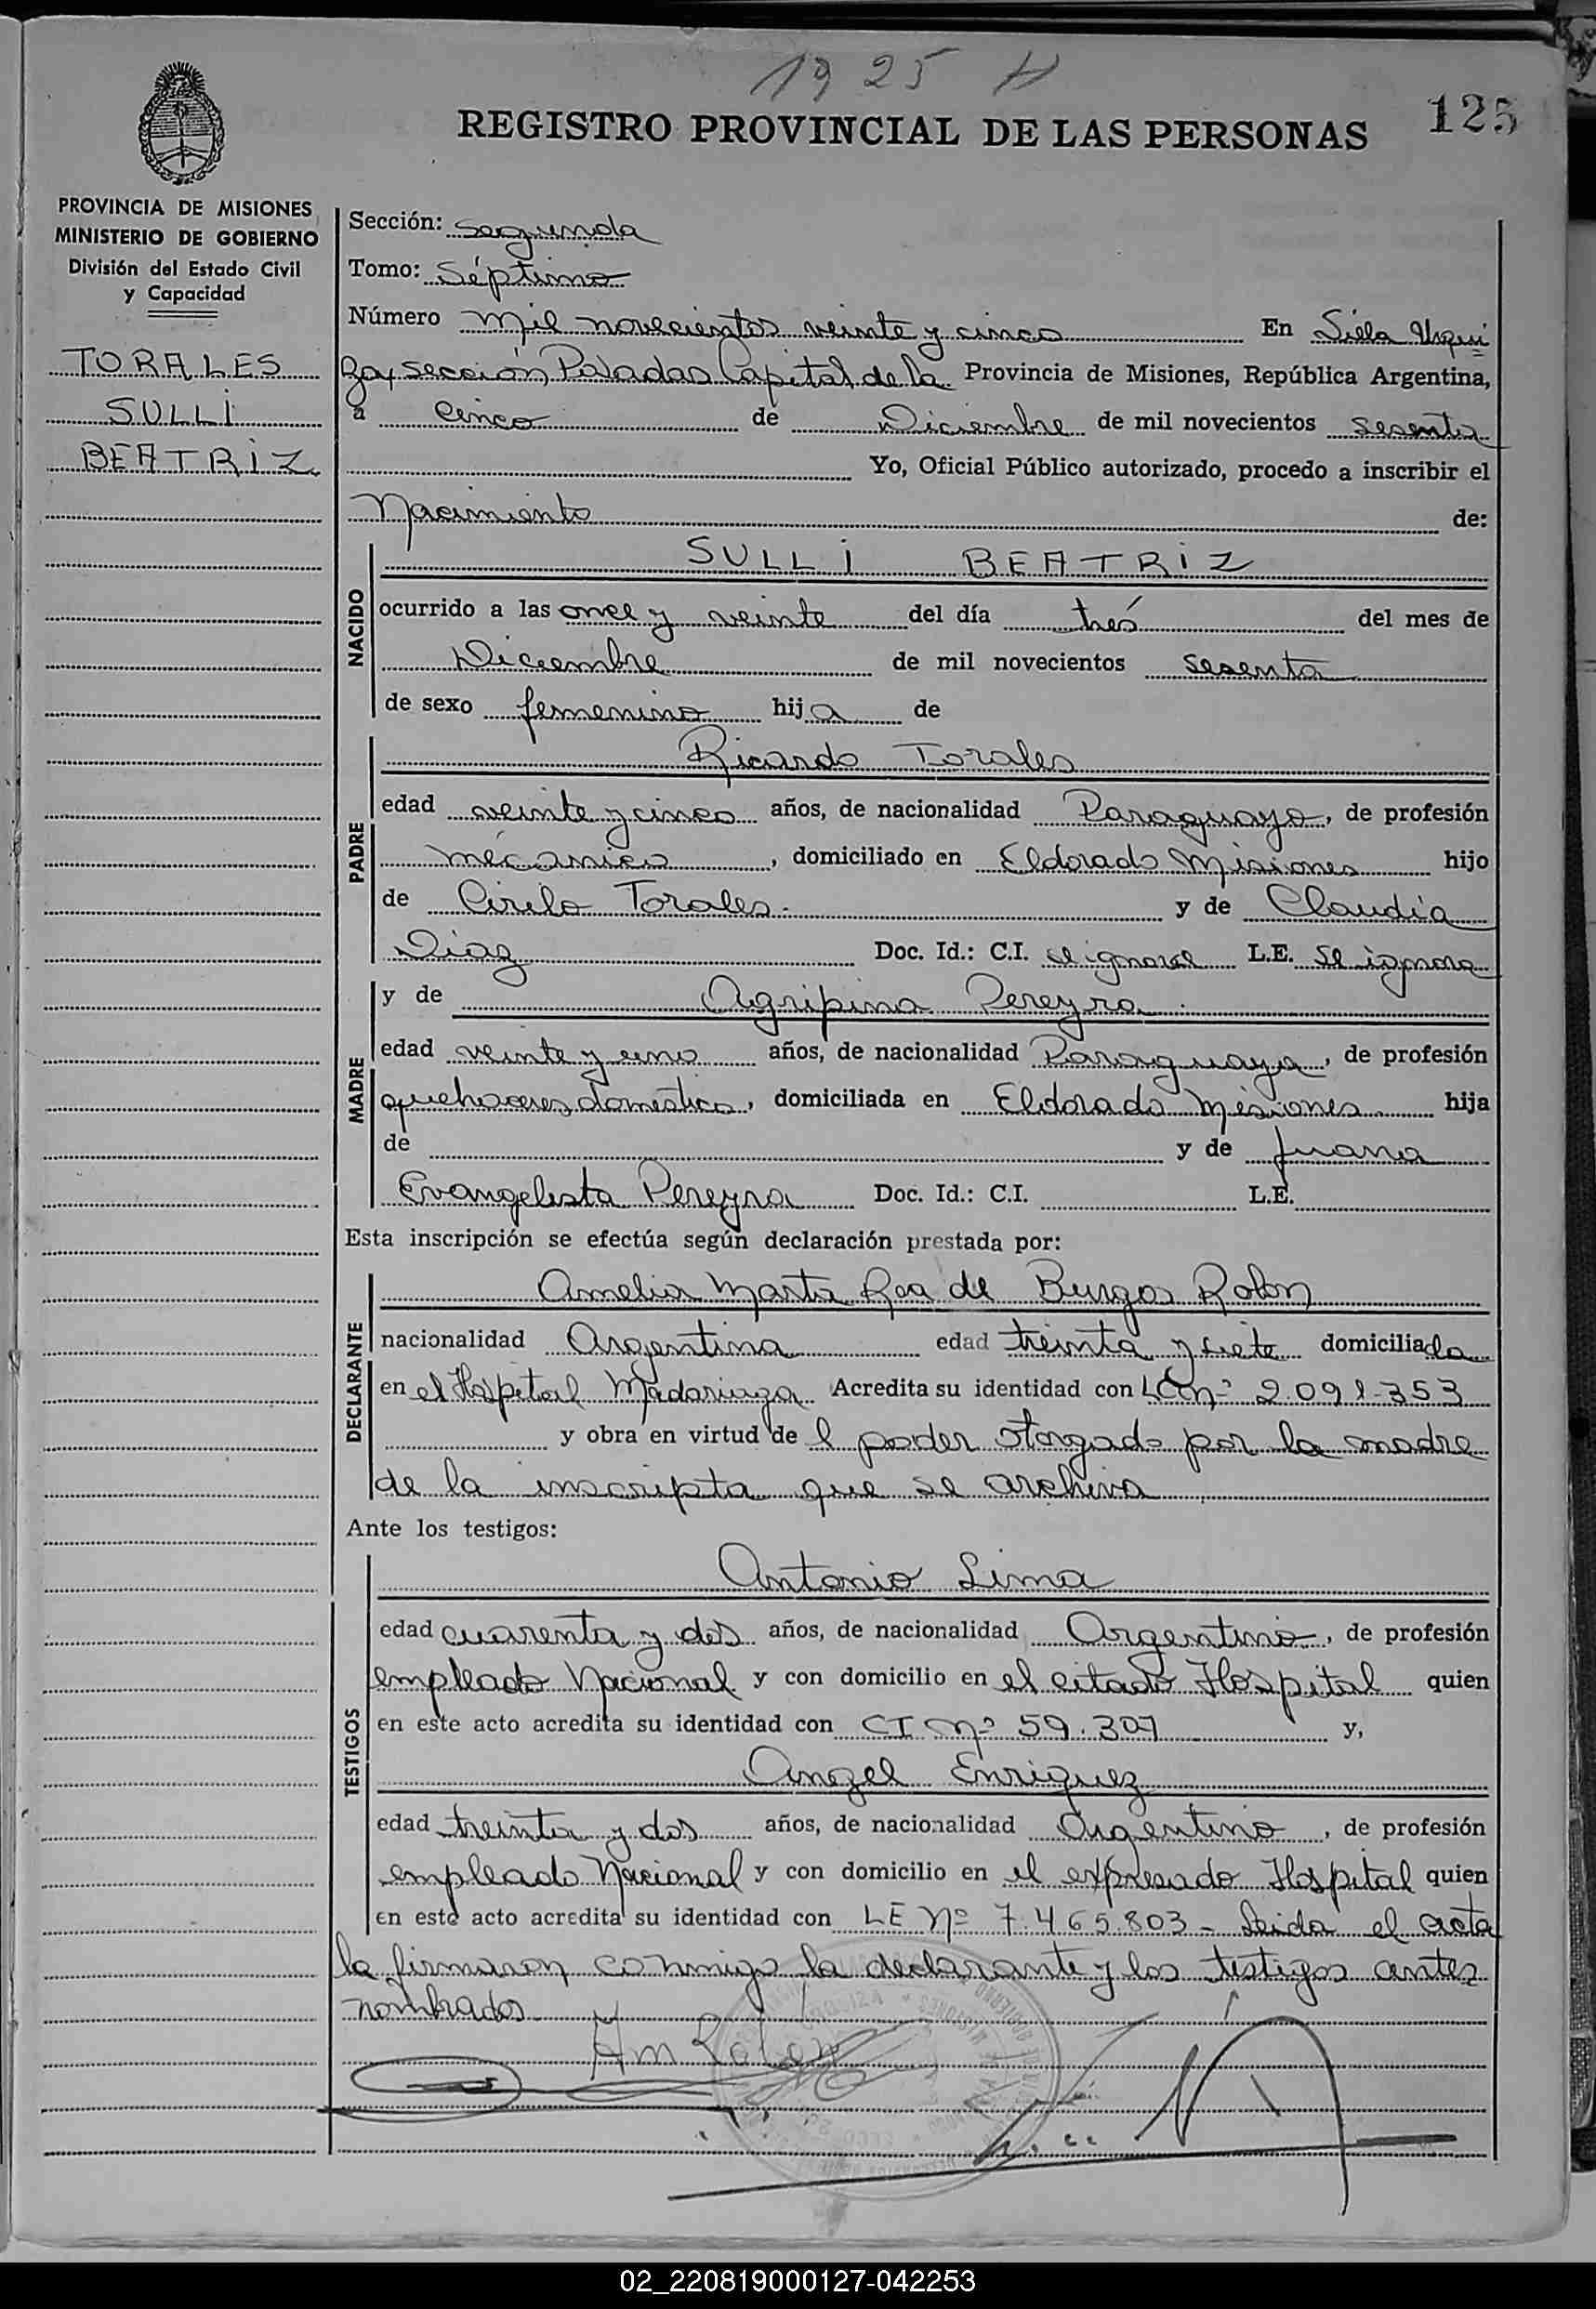 1925 H
125
REGISTRO PROVINCIAL DE LAS PERSONAS
PROVINCIA DE MISIONES
MINISTERIO DE GOBIERNO
División del Estado Civil
y Capacidad
TORALES
SULLI
BEATRIZ
Sección: Segunda
Tomo: Séptimo
Número mil novecientos veinte y cinco En Villa Urqui
za, sección Posadas Capital de la Provincia de Misiones, República Argentina,
a cinco de Diciembre de mil novecientos sesenta
Yo, Oficial Público autorizado, procedo a inscribir el
Nacimiento de:
NACIDO
SULLI BEATRIZ
ocurrido a las once y veinte del día trés del mes de
Diciembre de mil novecientos sesenta
de sexo femenino hija de
PADRE
Ricardo Torales
edad veinte y cinco años, de nacionalidad Paraguayo, de profesión
mécanico, domiciliado en Eldorado Misiones hijo
de Cirilo Torales y de Claudia
Diaz Doc. Id.: C.I. se ignora L.E. Se ignora
MADRE
y de Agripina Pereyra
edad veinte y uno años, de nacionalidad Paraguaya, de profesión
quehaceres domestico, domiciliada en Eldorado Misiones hija
de y de Juana
Evangelista Pereyra Doc. Id.: C.I. L.E.
Esta inscripción se efectúa según declaración prestada por:
DECLARANTE
Amelia Marta Roa de Burgos Rolon
nacionalidad Argentina edad treinta y siete domiciliada
en el Hospital Madariaga Acredita su identidad con LC nº 2.091.353
y obra en virtud de l poder otorgado por la madre
de la inscripta que se archiva
Ante los testigos:
TESTIGOS
Antonio Lima
edad cuarenta y dos años, de nacionalidad Argentino, de profesión
empleado Nacional y con domicilio en el citado Hospital quien
en este acto acredita su identidad con CI nº 59.307 y,
Angel Enriquez
edad treinta y dos años, de nacionalidad Argentino, de profesión
empleado Nacional y con domicilio en el expresado Hospital quien
en este acto acredita su identidad con LE Nº 7.465.803 - Leida el acta
la firmaron conmigo la declarante y los testigos antes
nombrados
Am Rolon
02_220819000127-042253